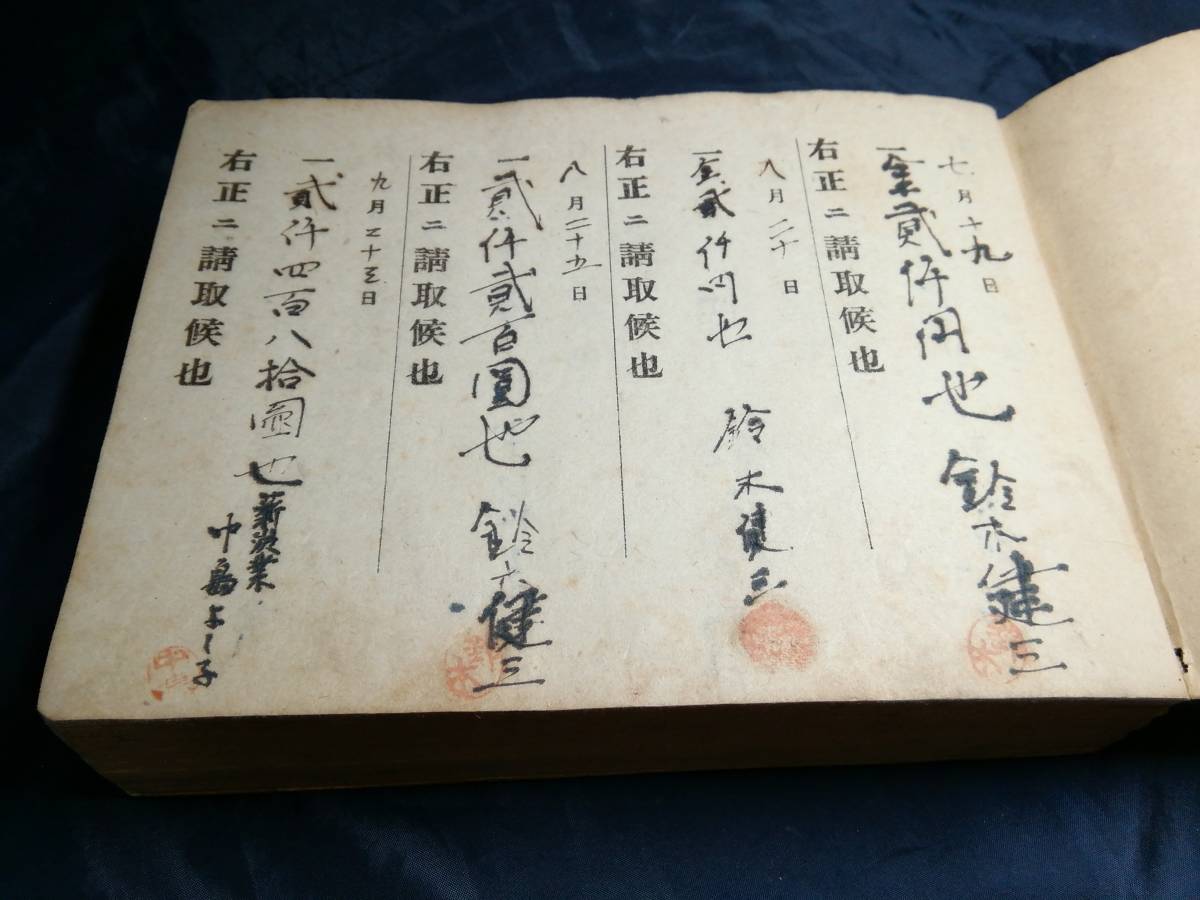 七月十九日
一金貳仟円也 鈴木健三
右正ニ請取候也
八月二十日
一金貳仟円也 鈴木健三
右正ニ請取候也
八月二十五日
一貳仟貳百圓也 鈴木健三
右正ニ請取候也
九月二十三日
一貳仟四百八拾圓也
中島よし子
右正ニ請取候也